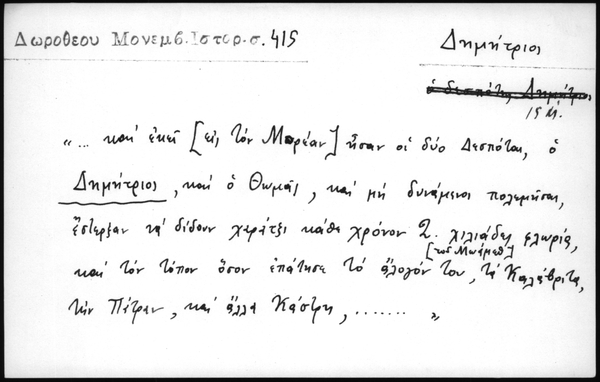 Δωροθεου Μονεμβ. Ιστορ. σ. 415
Δημήτριοι
ὁ δεσπότης Δημήτριος
15 Μ.
"... καί ἐκεῖ [εἰς τόν Μορέαν] ἦσαν οἱ δύο Δεσπόται, ὁ
Δημήτριος, καί ὁ Θωμᾶς, καί μή δυνάμενοι πολεμῆσαι,
ἔστερξαν νά δίδουν χαράτζι κάθε χρόνον 2. χιλιάδες φλωρία,
[τοῦ Μωάμεθ]
καί τόν τόπον ὅσον ἐπάτησε τό ἄλογόν του, τά Καλάβριτα,
τήν Πάτραν, καί ἄλλα Κάστρη, ....... "